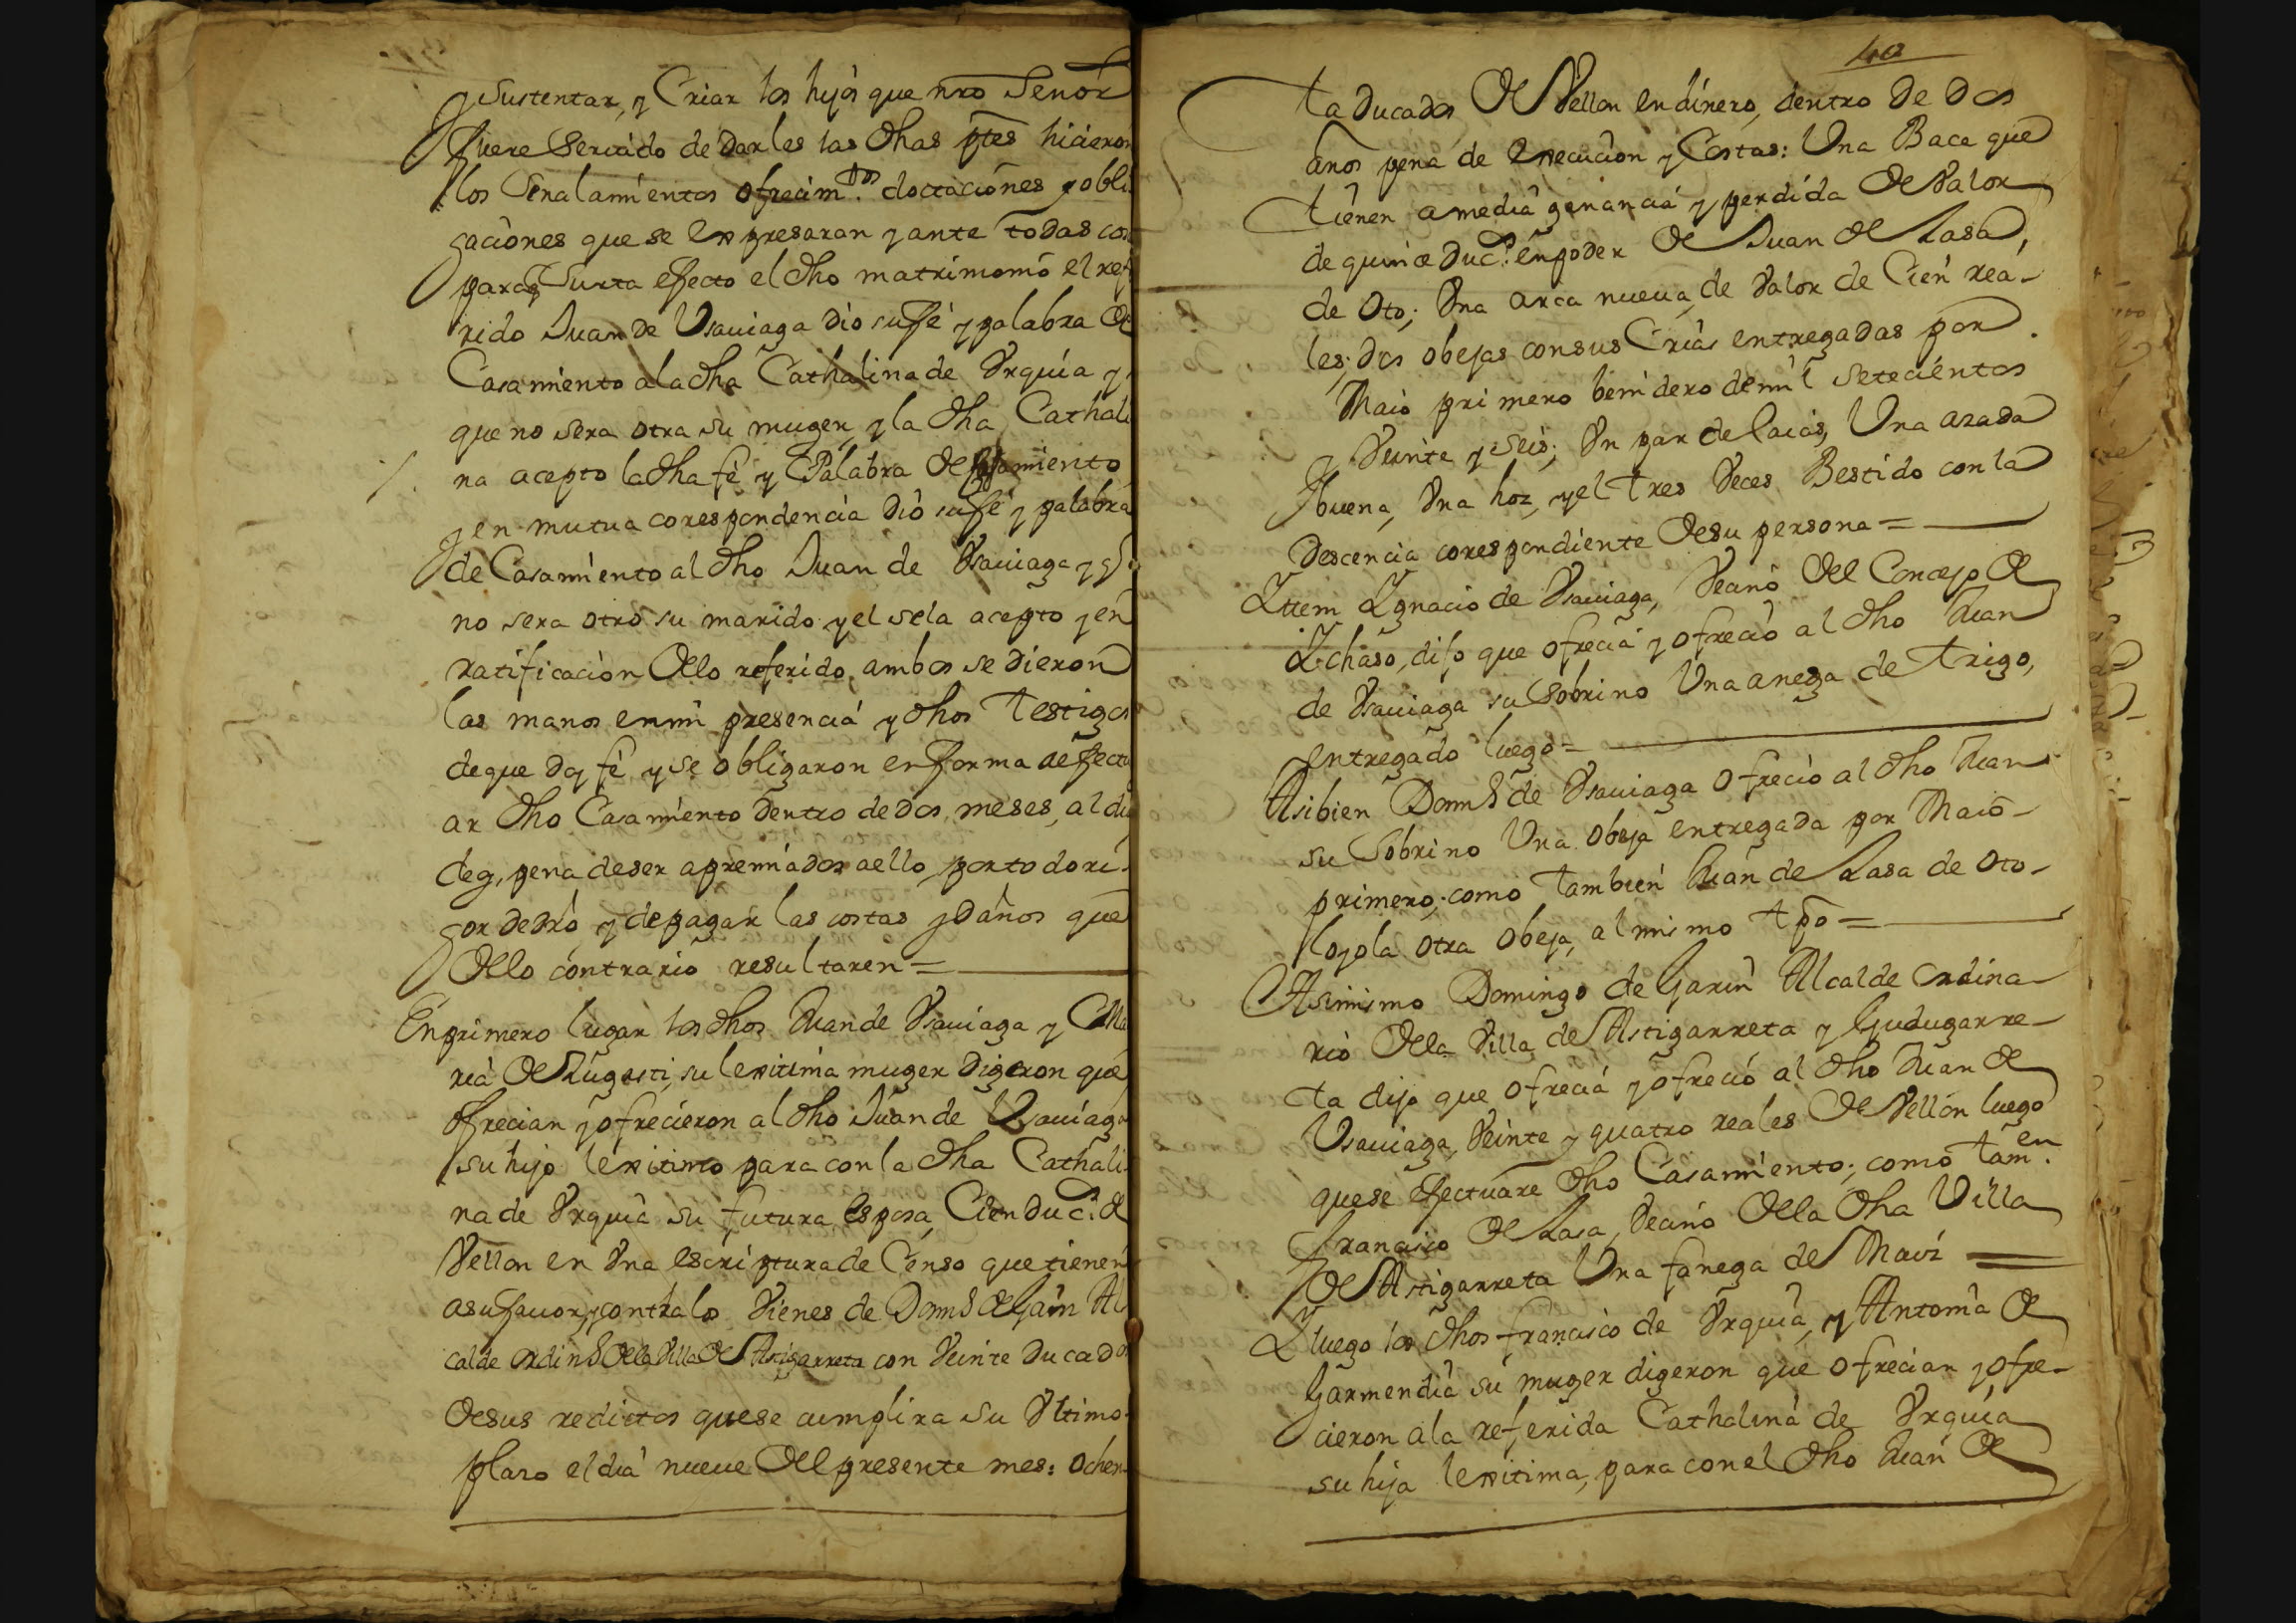 y Sustentar, y Criar los hijos que nro Señor
fuere Servido de darles las dhas ptes hicieron
los Señalamientos ofrecim.tos dotaciones y obli
gaciones que se expresaran y ante todas cos
para q Surta efecto el dho matrimonio el refe
rido Juan de Vsauiaga dio su fe y palabra de
Casamiento a la dha Cathalina de Vrquia y
que no sera otra su muger, y la dha Cathali
na acepto la dha fe y Palabra de Casamiento
y en mutua corespondencia dio su fe y palabra
de Casamiento al dho Juan de Vsauiaga y q
no sera otro su marido y el se la acepto y en
ratificacion dello referido, ambos se dieron
las manos en mi presencia y dhos testigos
de que doy fe y se obligaron en forma de fectu
ar dho Casamiento dentro de dos meses, al dia
de oy, pena de ser apremiados a ello por todo ri
gor de dro y de pagar las costas y daños que
dello contrario resultaren =
En primero lugar los dhos Juan de Vsauiaga y Ma
ria de Lugasti, su lexitima muger digeron que
ofrecian y ofrecieron al dho Juan de Vsauiaga
su hijo lexitimo para con la dha Cathali
na de Vrquia su futura esposa, Cien duc.s de
Vellon en Vna escriptura de Censo que tienen
a su fauor, y contra los Vienes de Dom.o de Garin Al
calde ordin.o de la Villa de Astigarreta con Veinte Ducados
de sus redictos que se cumplira su Vltimo
plaso el dia nueue del presente mes: ochen
40
ta ducados de Vellon en dinero, dentro de dos
años pena de execucion y Costas: Vna Baca que
tienen a media ganancia y perdida de Valor
de quince Duc.s en poder de Juan de Lasa,
de Oto; Vna arca nueua, de Valor de Cien rea-
les; dos obejas con sus Crias entregadas por
Maio primero benidero de mil setecientos
y Veinte y seis; Vn par de laias, Vna azada
buena, Vna hoz, y el tres Veces Bestido con la
descencia corespondiente de su persona =
Yttem Ygnacio de Vsauiaga, Vecino del Concejo de
Ychaso, dijo que ofrecia y ofrecio al dho Juan
de Vsauiaga su Sobrino Vna anega de trigo,
entregado luego =
Asibien Dom.o de Vsauiaga ofrecio al dho Juan
su Sobrino Vna obeja entregada por Maio
primero; como tambien Juan de Lasa de Oto-
loyola otra obeja, al mismo tpo =
Asimismo Domingo de Garin Alcalde ordina-
rio de la Villa de Astigarreta y Gudugarre-
ta dijo que ofrecia y ofrecio al dho Juan de
Vsauiaga, Veinte y quatro reales de Vellon luego
que se efectuare dho Casamiento; como tam.en
Francisco de Lasa, Vecino de la dha Villa
de Astigarreta Vna fanega de Maiz =
Y luego los dhos francisco de Vrquia, y Antonia de
Garmendia su muger digeron que ofrecian y ofre-
cieron a la referida Cathalina de Vrquia
su hija lexitima, para con el dho Juan de